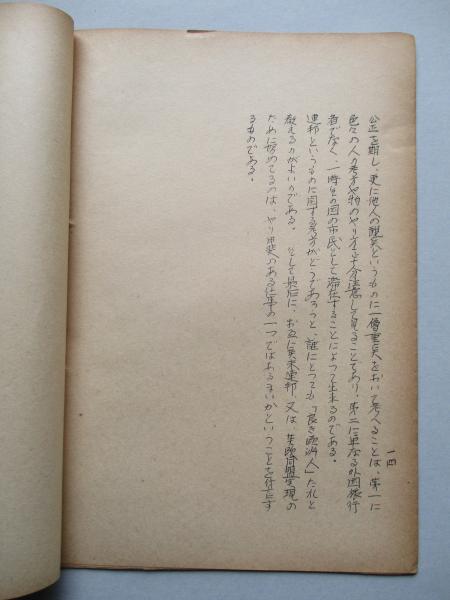 一四
公正を期し、更に他人の観点というものに一層重点をおいて考へることは、第一に
色々の人の考方や物のやり方に十分注意して見ることであり、第二に単なる外国旅行
者でなく、一時その国の市民として滞在することによつて出来るのである。
連邦というものに関する考方がどうであらうと、誰にとつても「良き欧洲人」たれと
教えるのがよいのである。そして最后に、お互に 連邦、又は、 同盟実現の
ために努めてるのは、やり甲斐のある仕事の一つではあるまいかということを付言す
るものである。